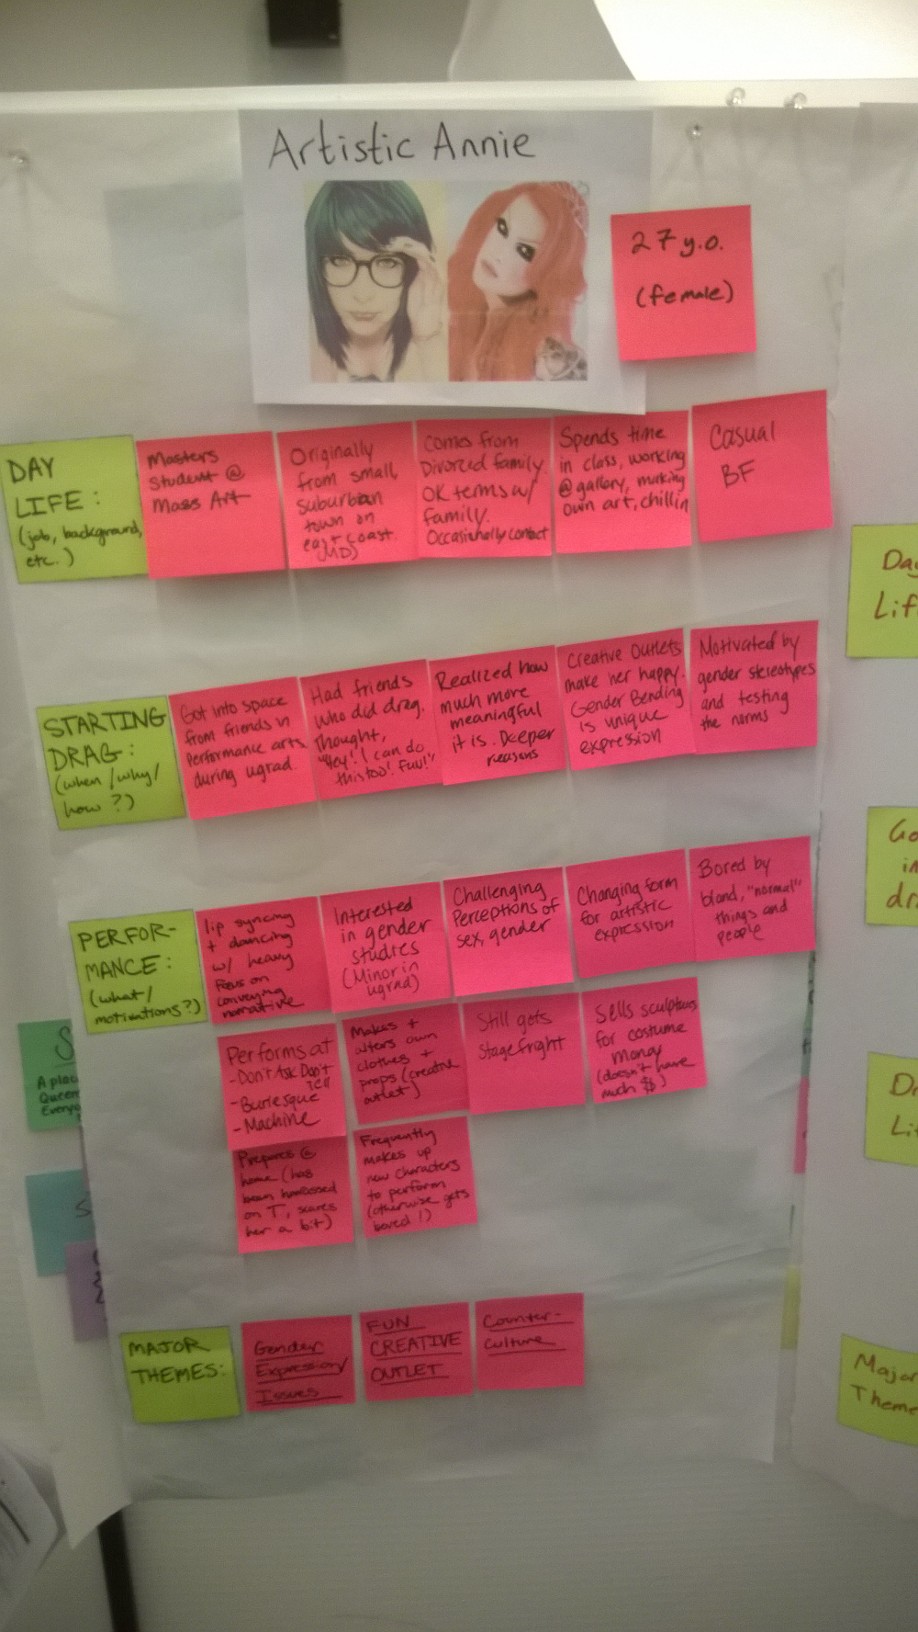 Artistic Annie
27 y.o.
(female)
DAY
LIFE:
(job, background,
etc.)
Masters
Student @
Mass Art
Originally
from small,
suburban
town on
east coast.
(MD)
Comes from
Divorced family.
OK terms w/
family.
Occasionally contact
Spends time
in class, working
@ gallery, making
own art, chillin
Casual
BF
STARTING
DRAG:
(when/why/
how?)
Got into space
from friends in
Performance arts
during ugrad.
Had friends
who did drag.
Thought,
"Hey! I can do
this too! Fun!"
Realized how
much more
meaningful
it is. Deeper
reasons
Creative Outlets
make her happy.
Gender Bending
is unique
expression
Motivated by
gender stereotypes
and testing
the norms
PERFOR-
MANCE:
(what/
motivations?)
lip syncing
+ dancing
w/ heavy
focus on
conveying
narrative
Interested
in gender
studies
(Minor in
ugrad)
Challenging
Perceptions of
sex, gender
Changing form
for artistic
expression
Bored by
bland, "normal"
things and
people
Performs at
-Don't Ask Don't
Tell
-Burlesque
-Machine
Makes +
alters own
clothes +
props (creative
outlet)
Still gets
Stagefright
Sells sculptures
for costume
money
(doesn't have
much $$)
Prepares @
home (has
been harassed
on T, scares
her a bit)
Frequently
makes up
new characters
to perform
(otherwise gets
bored!)
MAJOR
THEMES:
Gender
Expression/
Issues
FUN
CREATIVE
OUTLET
Counter-
culture
S
A plac
Queer
Everyo
S
Day
Lif
Go
in
dr
Dr
Li
Major
Theme